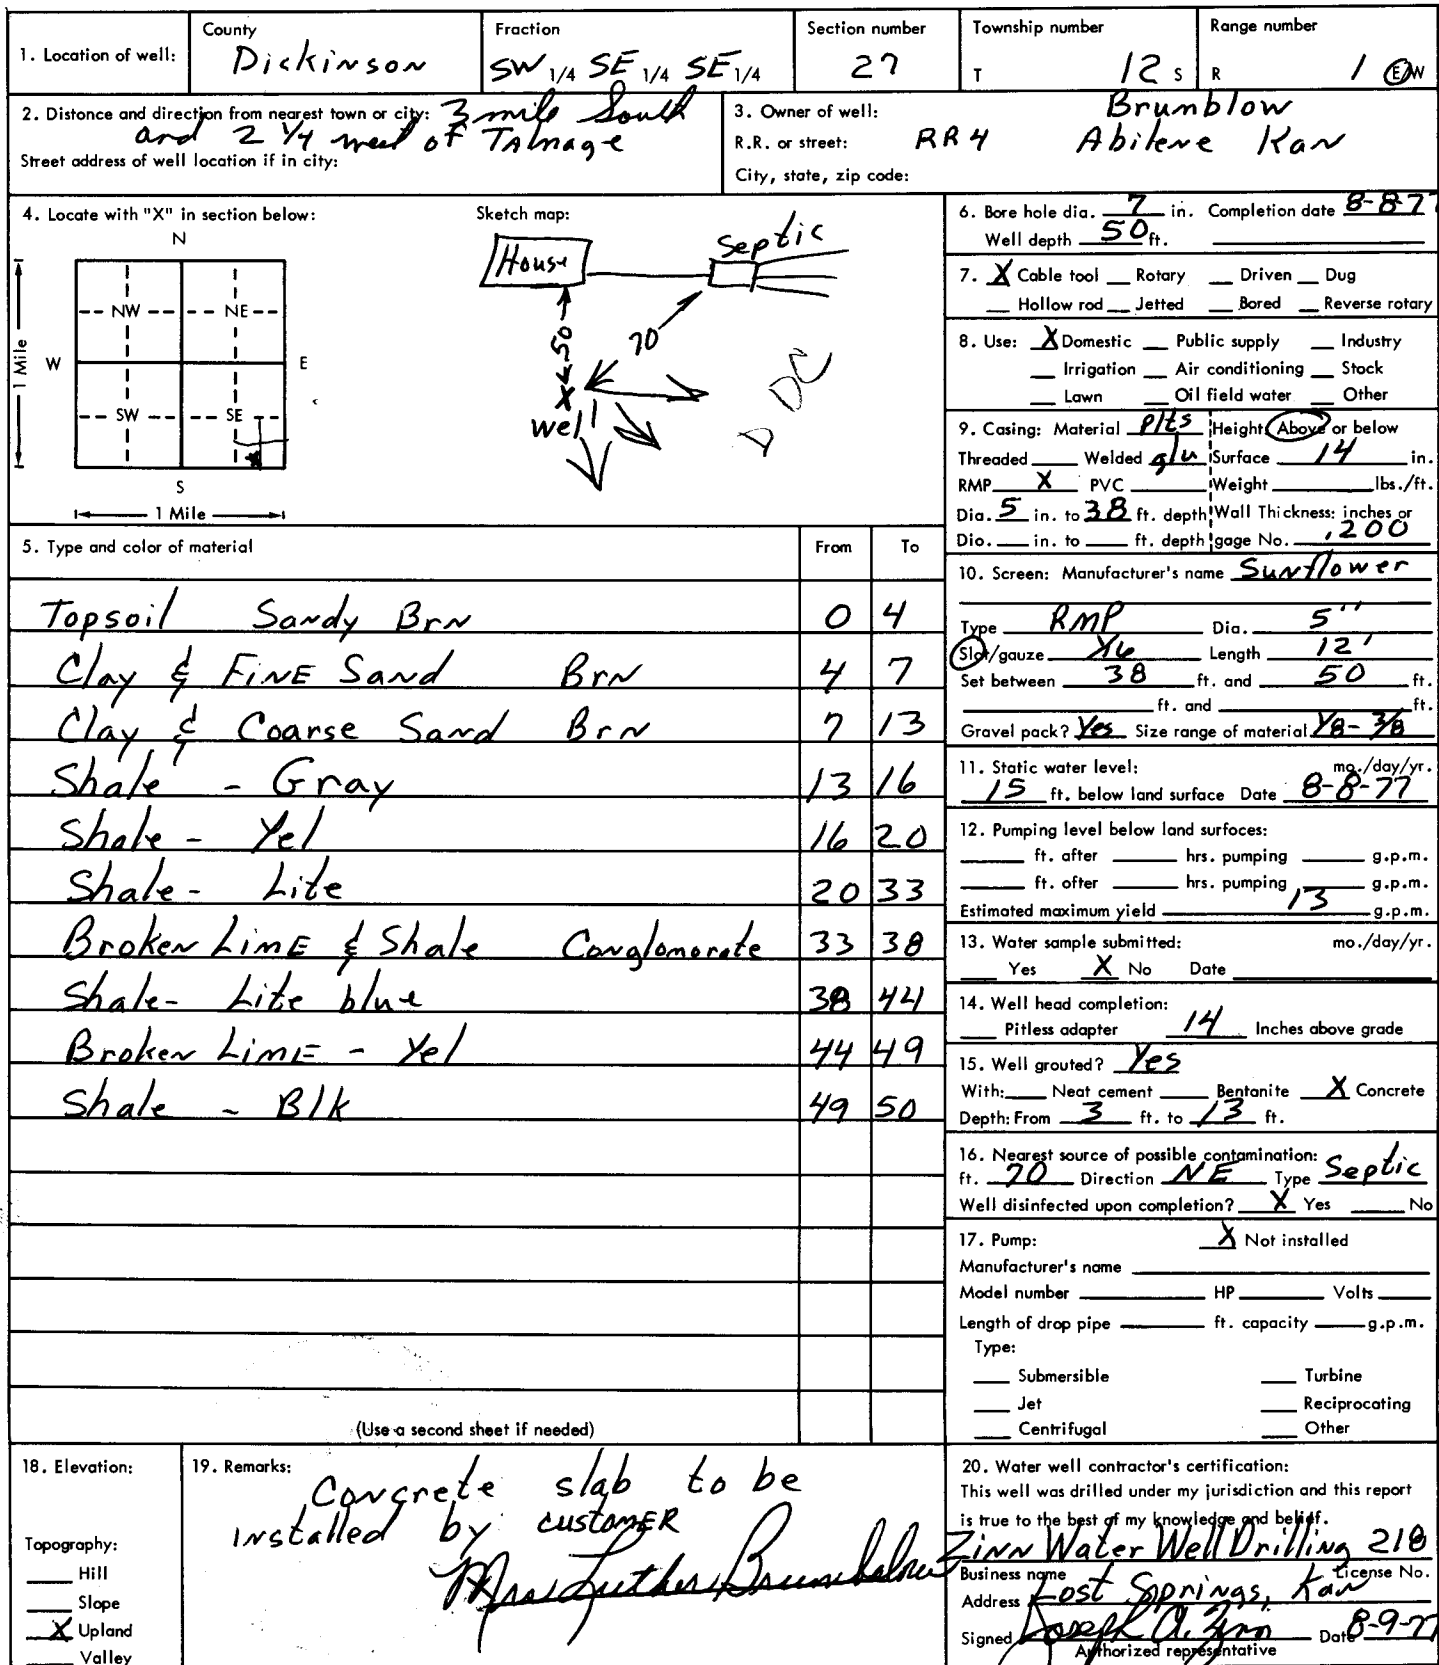 1. Location of well:
County
Dickinson
Fraction
SW 1/4 SE 1/4 SE 1/4
Section number
27
Township number
T 12 S
Range number
R 1 E/W
2. Distance and direction from nearest town or city: 3 mile South
and 2 1/4 west of Talmage
Street address of well location if in city:
3. Owner of well: Brumblow
R.R. or street: RR4 Abilene Kan
City, state, zip code:
4. Locate with "X" in section below:
N
NW NE
W E
SW SE
S
1 Mile
1 Mile
Sketch map:
House
Septic
50
70
X
well
D DC
5. Type and color of material From To
Topsoil Sandy Brn 0 4
Clay & FINE Sand Brn 4 7
Clay & Coarse Sand Brn 7 13
Shale - Gray 13 16
Shale - Yel 16 20
Shale - Lite 20 33
Broken Lime & Shale Conglomorate 33 38
Shale - Lite blue 38 44
Broken Lime - Yel 44 49
Shale - Blk 49 50
(Use a second sheet if needed)
6. Bore hole dia. 7 in. Completion date 8-8-77
Well depth 50 ft.
7. X Cable tool Rotary Driven Dug
Hollow rod Jetted Bored Reverse rotary
8. Use: X Domestic Public supply Industry
Irrigation Air conditioning Stock
Lawn Oil field water Other
9. Casing: Material plts Height: Above or below
Threaded Welded glu Surface 14 in.
RMP X PVC Weight lbs./ft.
Dia. 5 in. to 38 ft. depth Wall Thickness: inches or
Dia. in. to ft. depth gage No. .200
10. Screen: Manufacturer's name Sunflower
Type RMP Dia. 5"
Slot/gauze 1/16 Length 12'
Set between 38 ft. and 50 ft.
ft. and ft.
Gravel pack? Yes Size range of material 1/8-3/8
11. Static water level: mo./day/yr.
15 ft. below land surface Date 8-8-77
12. Pumping level below land surfaces:
ft. after hrs. pumping g.p.m.
ft. after hrs. pumping g.p.m.
Estimated maximum yield 13 g.p.m.
13. Water sample submitted: mo./day/yr.
Yes X No Date
14. Well head completion:
Pitless adapter 14 Inches above grade
15. Well grouted? Yes
With: Neat cement Bentanite X Concrete
Depth: From 3 ft. to 13 ft.
16. Nearest source of possible contamination:
ft. 70 Direction NE Type Septic
Well disinfected upon completion? X Yes No
17. Pump: X Not installed
Manufacturer's name
Model number HP Volts
Length of drop pipe ft. capacity g.p.m.
Type:
Submersible Turbine
Jet Reciprocating
Centrifugal Other
18. Elevation:
Topography:
Hill
Slope
X Upland
Valley
19. Remarks:
Concrete slab to be
installed by customer
Mrs Luther Brumbalow
20. Water well contractor's certification:
This well was drilled under my jurisdiction and this report
is true to the best of my knowledge and belief.
Zinn Water Well Drilling 218
Business name License No.
Address Lost Springs, Kan
Signed Joseph A. Zinn Date 8-9-77
Authorized representative